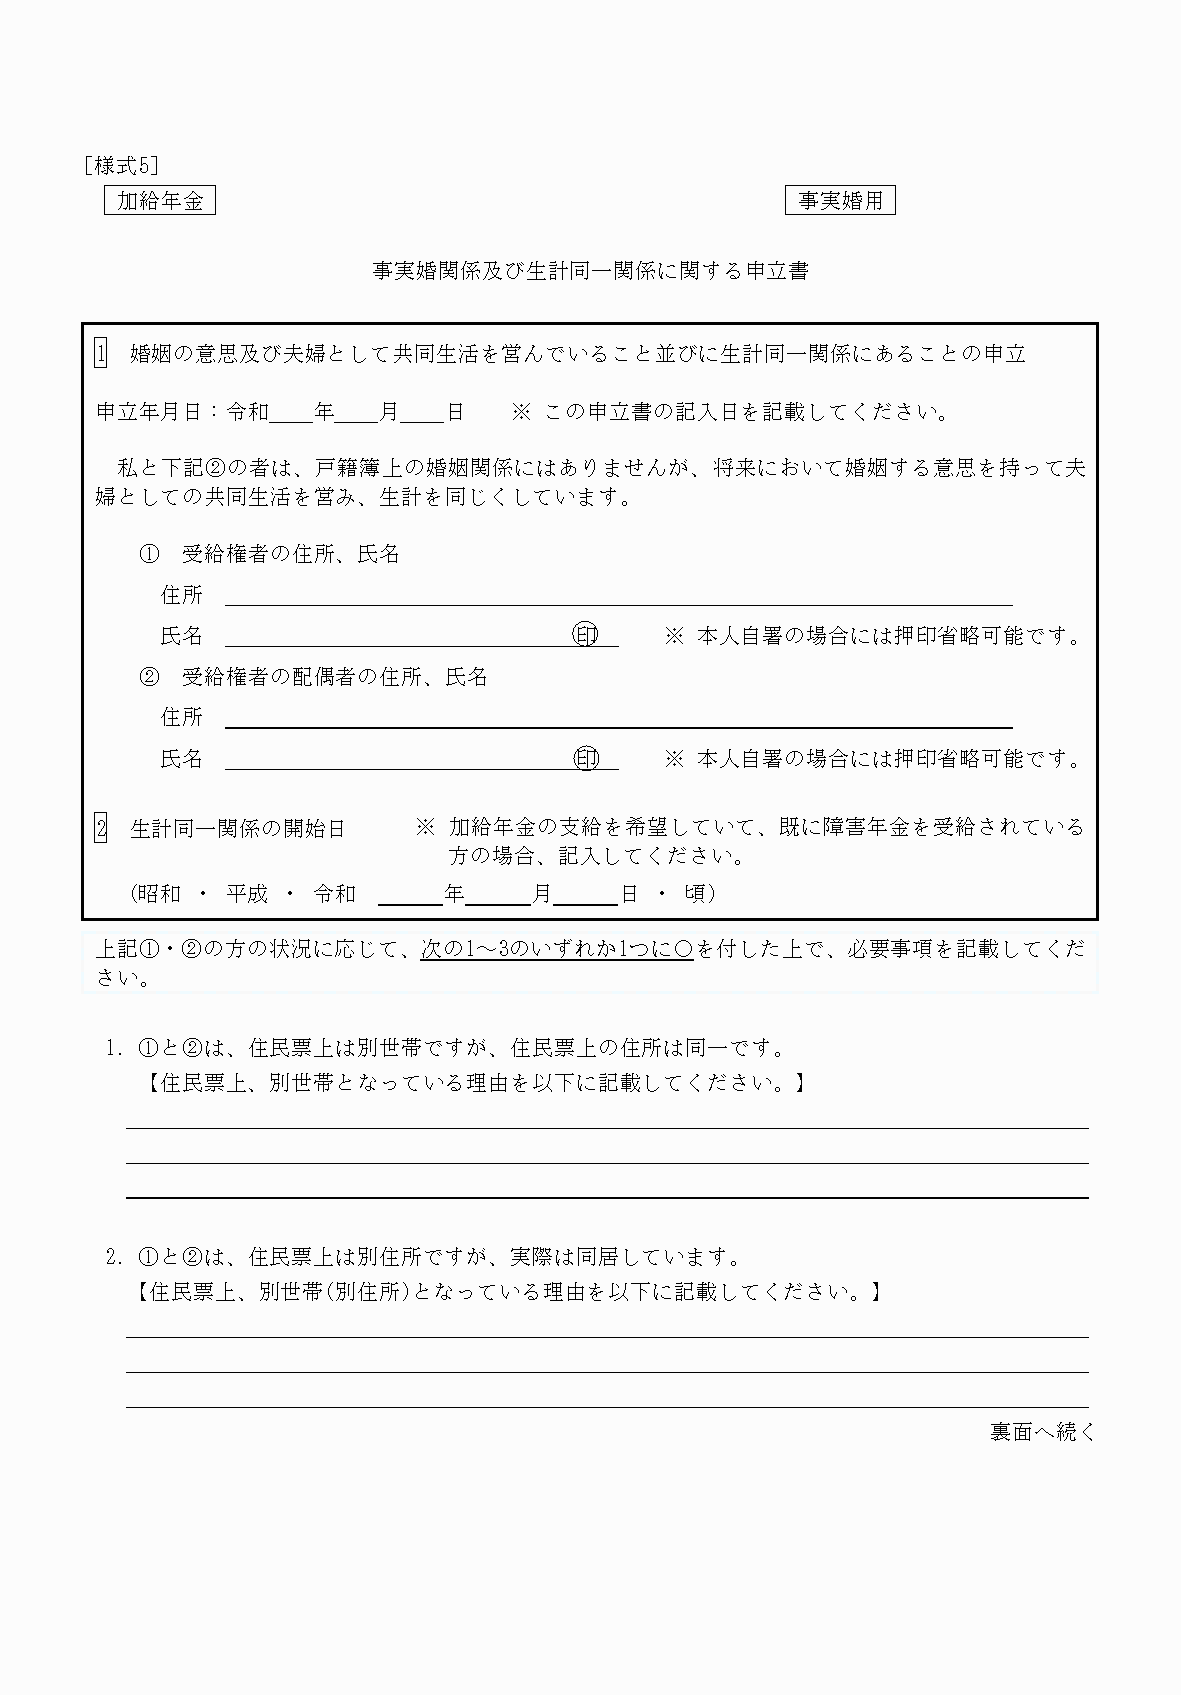 [様式5]
加給年金 事実婚用
事実婚関係及び生計同一関係に関する申立書
1 婚姻の意思及び夫婦として共同生活を営んでいること並びに生計同一関係にあることの申立
申立年月日：令和____年____月____日 ※ この申立書の記入日を記載してください。
私と下記②の者は、戸籍簿上の婚姻関係にはありませんが、将来において婚姻する意思を持って夫
婦としての共同生活を営み、生計を同じくしています。
① 受給権者の住所、氏名
住所
氏名 ㊞ ※ 本人自署の場合には押印省略可能です。
② 受給権者の配偶者の住所、氏名
住所
氏名 ㊞ ※ 本人自署の場合には押印省略可能です。
2 生計同一関係の開始日 ※ 加給年金の支給を希望していて、既に障害年金を受給されている
方の場合、記入してください。
(昭和 ・ 平成 ・ 令和 ______年______月______日 ・ 頃)
上記①・②の方の状況に応じて、次の1～3のいずれか1つに○を付した上で、必要事項を記載してくだ
さい。
1. ①と②は、住民票上は別世帯ですが、住民票上の住所は同一です。
【住民票上、別世帯となっている理由を以下に記載してください。】
2. ①と②は、住民票上は別住所ですが、実際は同居しています。
【住民票上、別世帯(別住所)となっている理由を以下に記載してください。】
裏面へ続く